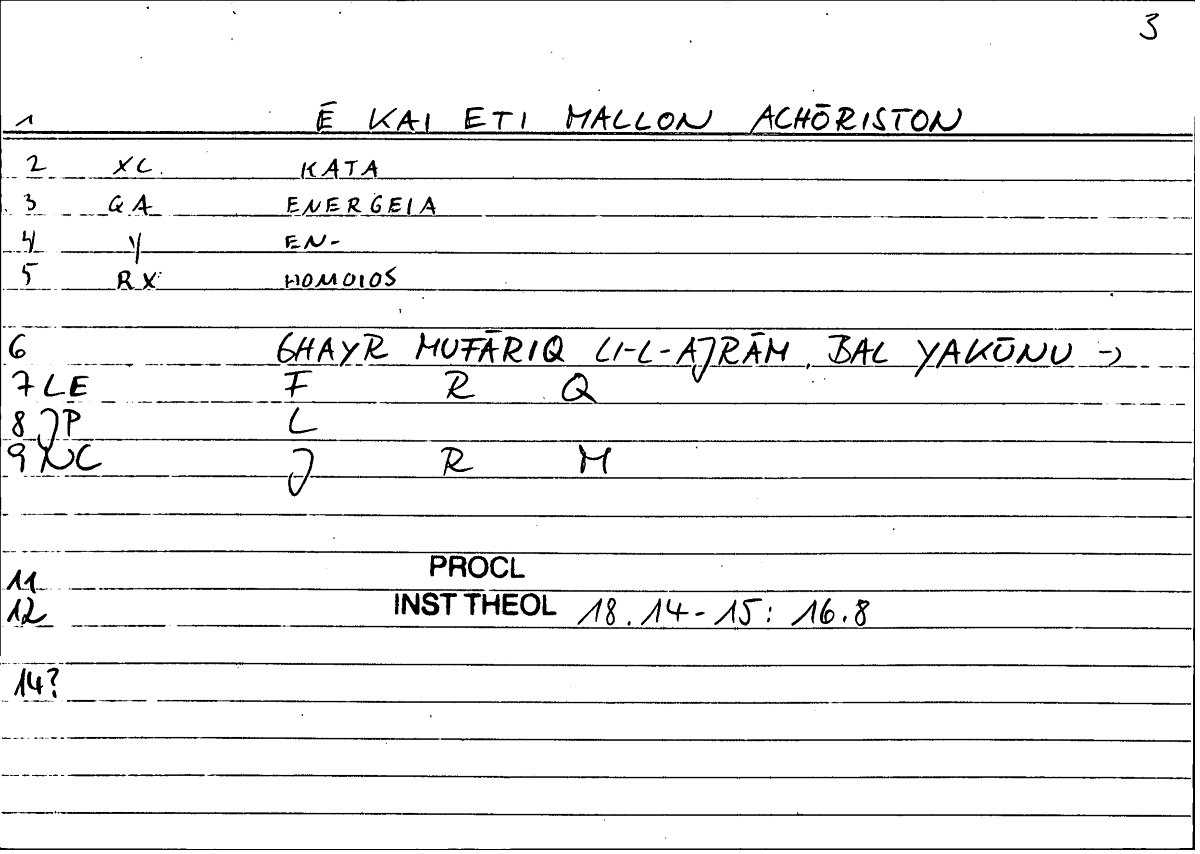 3
1 Ē KAI ETI MALLON ACHŌRISTON
2 XC. KATA
3 GA ENERGEIA
4 Y EN-
5 RX HOMOIOS
6 GHAYR MUFĀRIQ LI-L-AJRĀM, BAL YAKŪNU →
7 LE F R Q
8 JP L
9 NC J R M
11 PROCL
12 INST THEOL 18.14-15: 16.8
14?